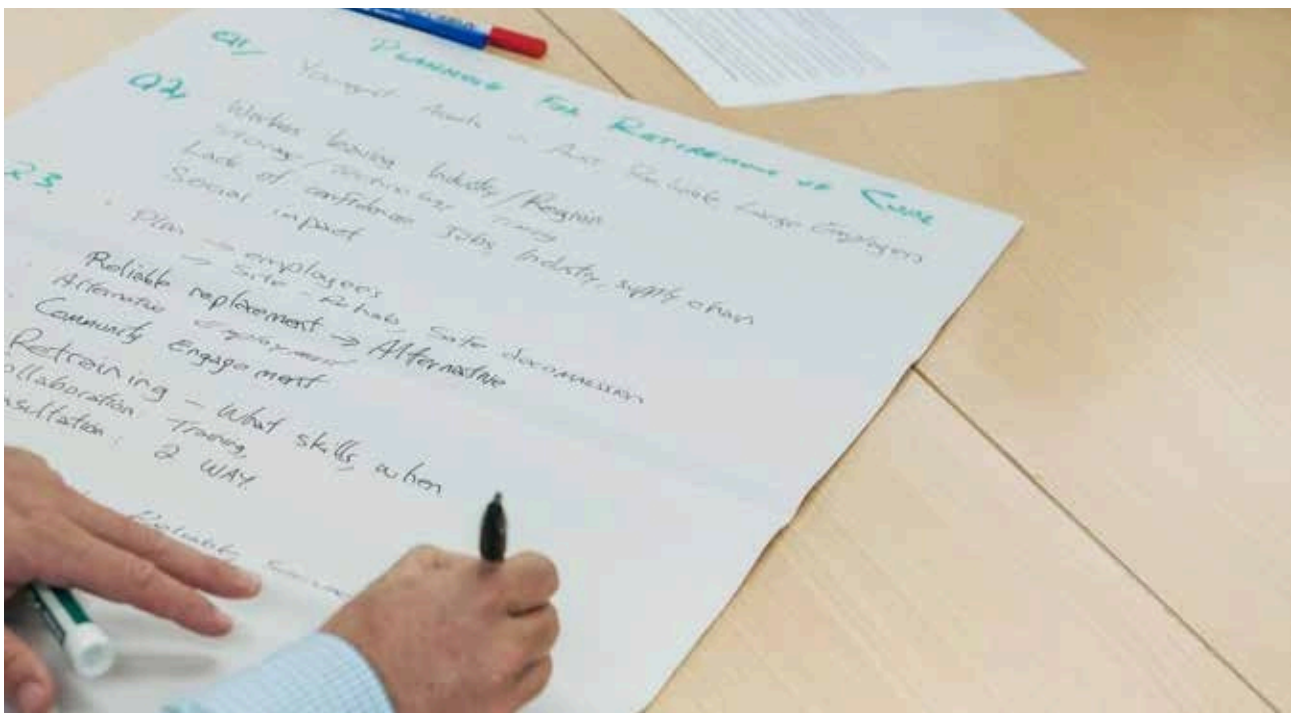 PLANNING FOR RETIREMENT OF
Q1/ Youngest in Aust, Large Employers
Q2, Workers leaving Industry/Region
Storage /
Lack of confidence Jobs, Industry, supply chain
Social impact
Q3. · Plan → employees
→ Site - Rehab, Safe decommission
· Reliable replacement → Alternative
· Alternative employment
· Community Engagement
Retraining - What skills, when
ollaboration Training,
nsultation. 2 WAY
Reliable